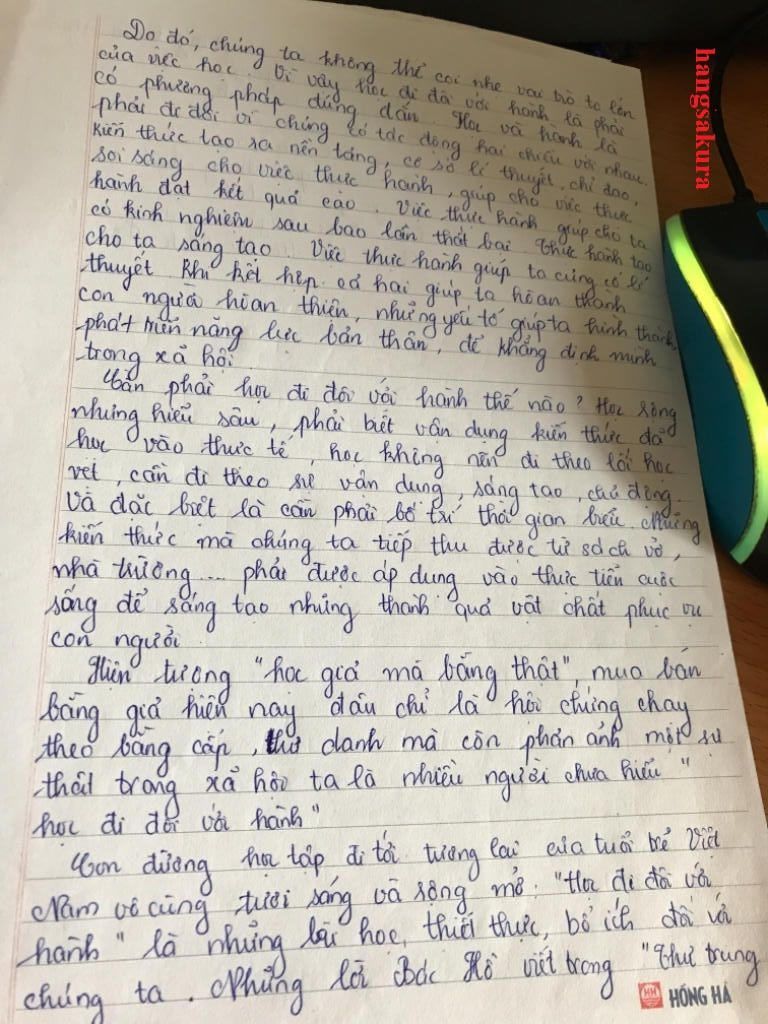 Do đó, chúng ta không thể coi nhẹ vai trò to lớn
của việc học. Vì vậy học đi đôi với hành là phải
có phương pháp đúng đắn. Học và hành là
phải đi đôi vì chúng có tác động hai chiều với nhau.
Kiến thức tạo ra nền tảng, cơ sở lí thuyết, chỉ đạo,
soi sáng cho việc thực hành, giúp cho việc thực
hành đạt kết quả cao. Việc thực hành giúp cho ta
có kinh nghiệm sau bao lần thất bại. Thực hành tạo
cho ta sáng tạo. Việc thực hành giúp ta củng cố lí
thuyết. Khi kết hợp cả hai giúp ta hoàn thành
con người hoàn thiện, những yếu tố giúp ta hình thành,
phát triển năng lực bản thân, để khẳng định mình
trong xã hội.
Cần phải học đi đôi với hành thế nào? Học rộng
nhưng hiểu sâu, phải biết vận dụng kiến thức đã
học vào thực tế, học không nên đi theo lối học
vẹt, cần đi theo sự vận dụng, sáng tạo, chủ động.
Và đặc biệt là cần phải bố trí thời gian biểu. Những
kiến thức mà chúng ta tiếp thu được từ sách vở,
nhà trường... phải được áp dụng vào thực tiễn cuộc
sống để sáng tạo những thành quả vật chất phục vụ
con người.
Hiện tượng "học giả mà bằng thật", mua bán
bằng giả hiện nay đâu chỉ là hội chứng chạy
theo bằng cấp, hư danh mà còn phản ánh một sự
thật trong xã hội ta là nhiều người chưa hiểu "
học đi đôi với hành"
Con đường học tập đi tới tương lai của tuổi trẻ Việt
Nam vô cùng tươi sáng và rộng mở. "Học đi đôi với
hành" là những bài học, thiết thực, bổ ích đối với
chúng ta. Những lời Bác Hồ viết trong "Thư trung
HH HỒNG HÀ
hangsakura